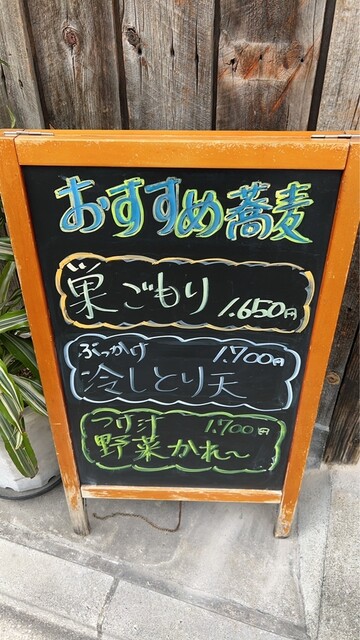 おすすめ蕎麦
巣ごもり 1.650円
ぶっかけ 1.700円
冷しとり天
つけ汁 1.700円
野菜かれ〜